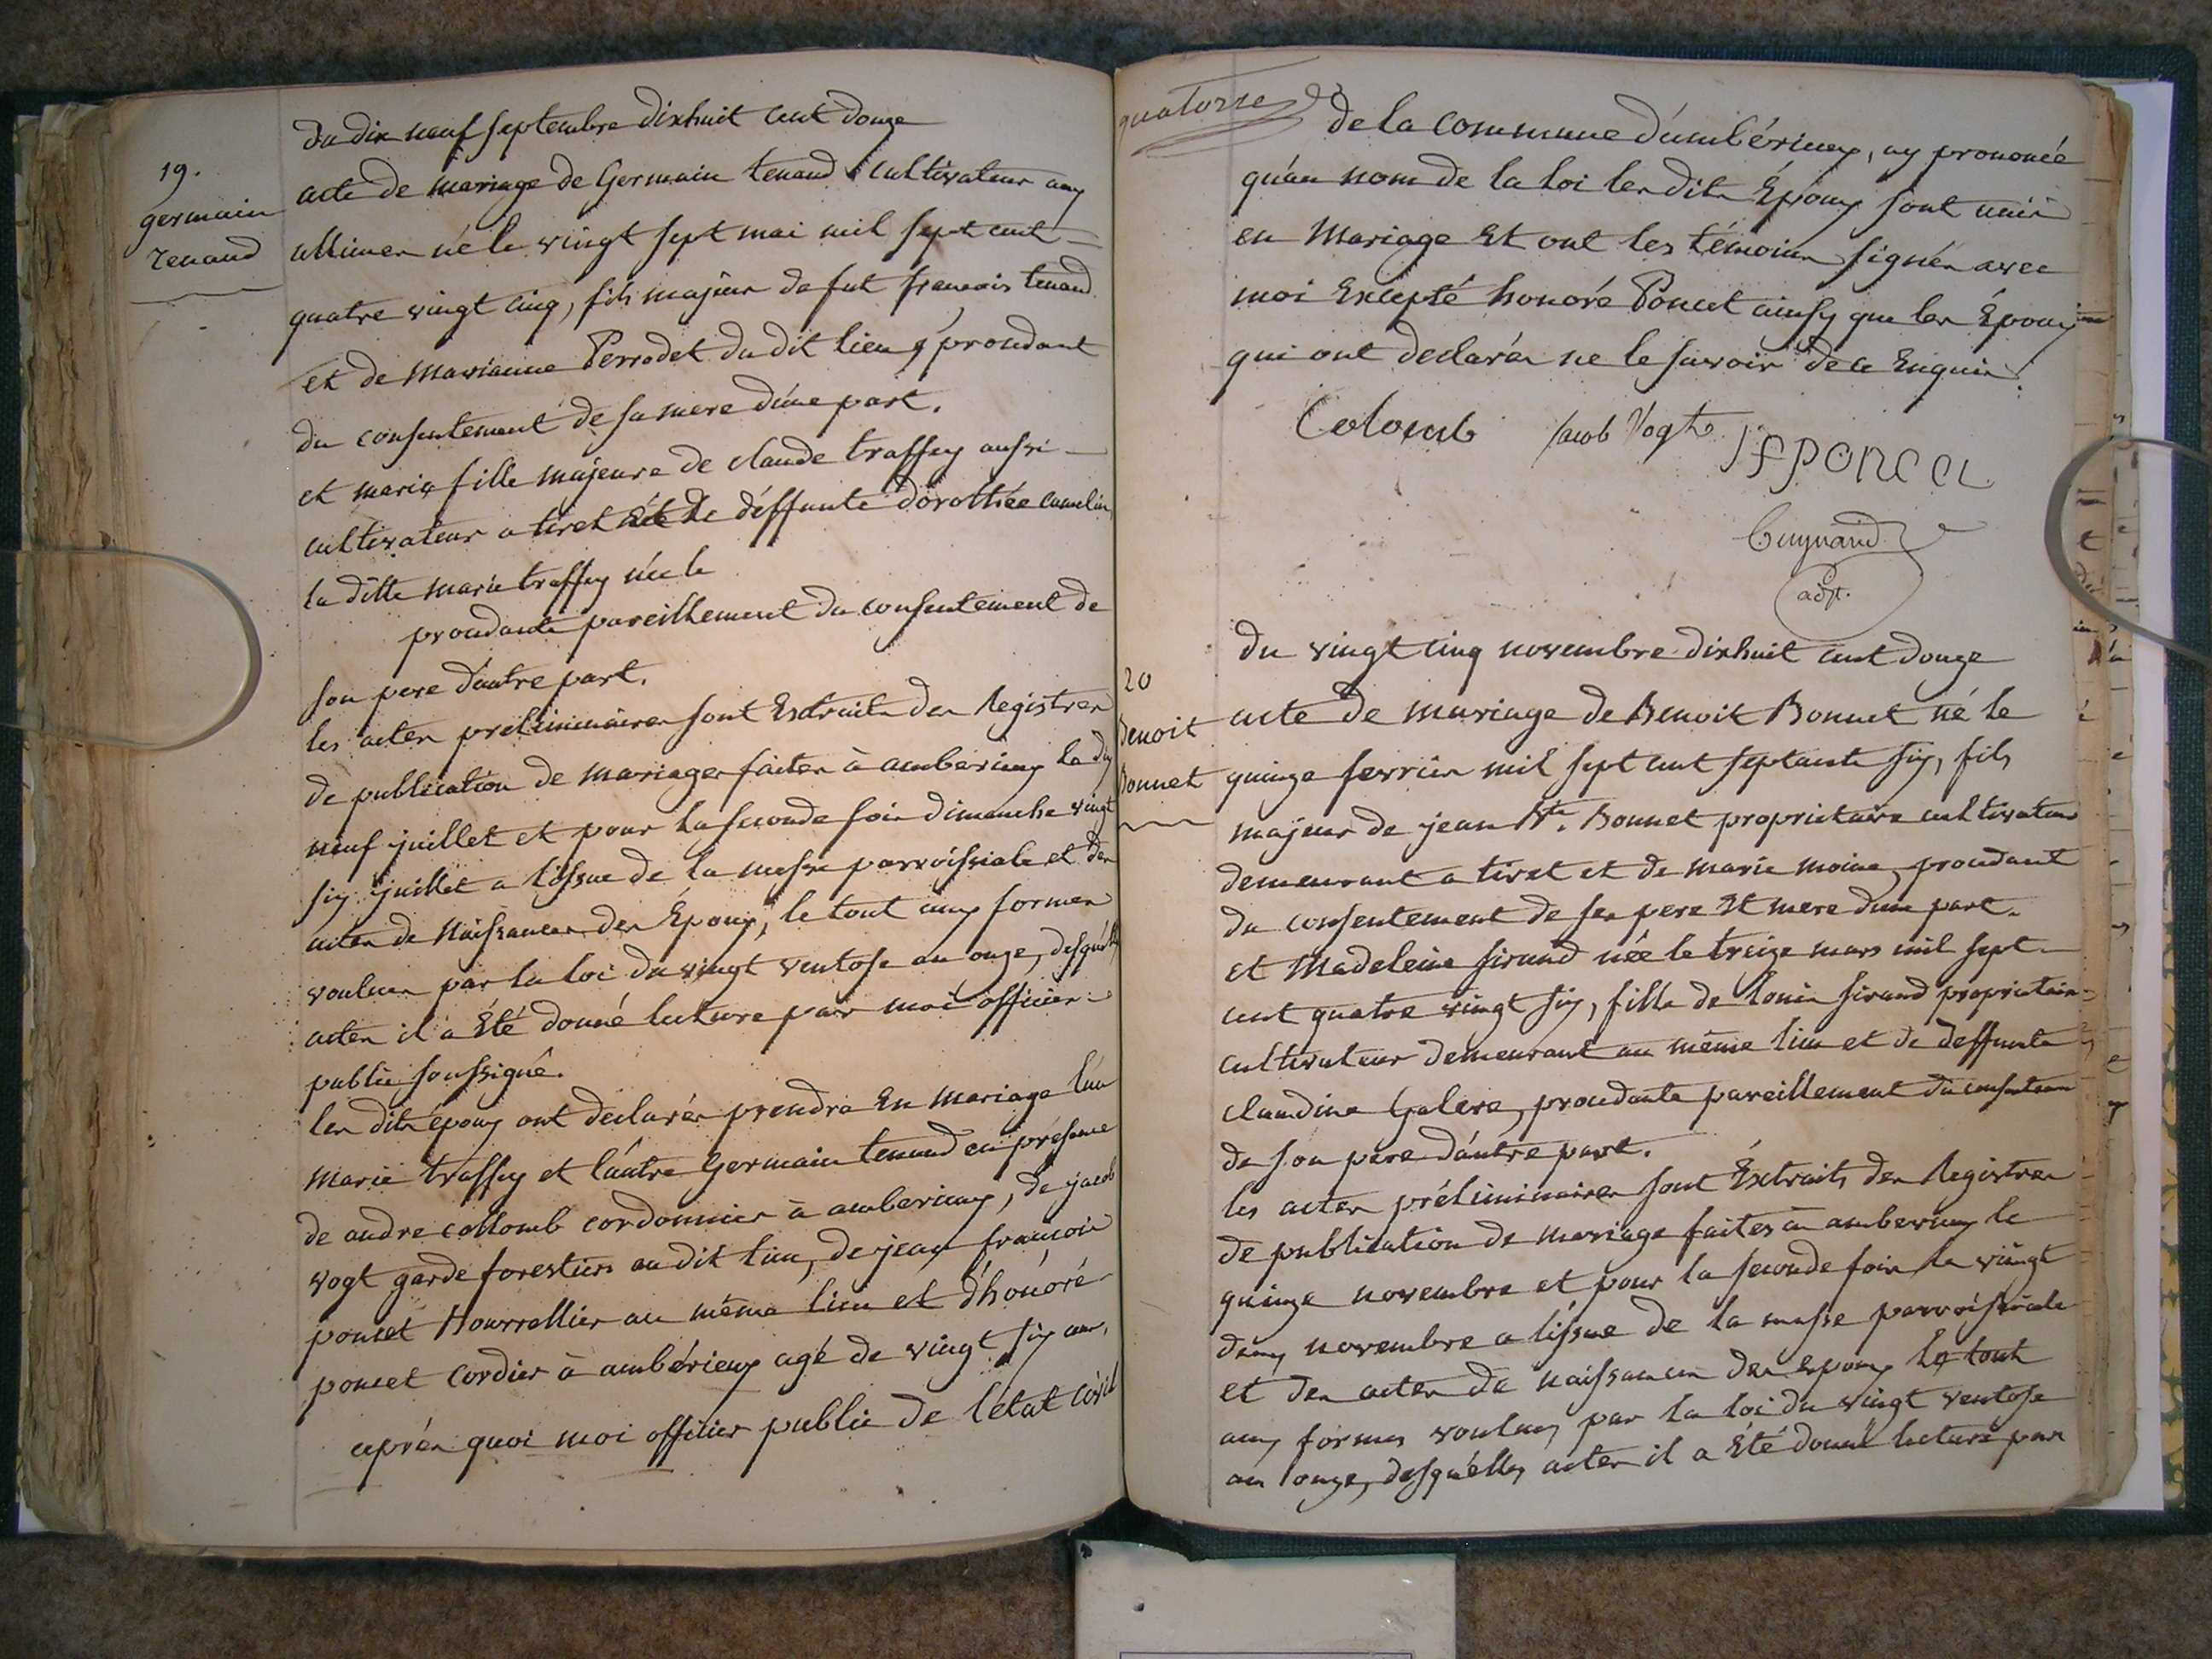 19.
germain
tenand
du dix neuf septembre dixhuit cent douze
acte de mariage de Germain tenand cultivateur aux
allimes né le vingt sept mai mil sept cent
quatre vingt cinq, fils majeur de fut francois tenand
et de Marianne Perrodet du dit lieu, procedant
du consentement de sa mere d'une part.
et marie fille majeure de claude traffey aussi
cultivateur a tiret et de déffunte dorothée camelin
la ditte marie traffey née le
procedante pareillement du consentement de
son pere d'autre part.
les actes préliminaires sont Extraits des Registres
de publication de mariages faites à amberieux le dix
neuf juillet et pour la seconde fois dimanche vingt
six juillet a l'issue de la messe parroissiale et des
actes de Naissances des Époux, le tout aux formes
voulues par la loi du vingt ventose an onze, desquels
actes il a Été donné lecture par moi officier
public soussigné.
les dits époux ont declarés prendre En Mariage l'un
Marie traffey et l'autre Germain tenand en présence
de andre collomb cordonnier à amberieux, de jacob
vogt garde forestier au dit lieu, de jean francois
poncet Bourrellier au même lieu et d'honoré
poncet cordier à ambérieux agé de vingt six ans.
après quoi moi officier public de l'état civil
quatorze
de la commune d'ambérieux, ay prononcé
qu'au nom de la loi les dits Époux sont unis
en Mariage Et ont les témoins signés avec
moi Excepté honoré Poncet ainsy que les Époux
qui ont declarés ne le savoir de ce Enquis.
Colomb Jacob Vogt JfPONCET
Cuynaud
adjt.
20
Benoit
Bonnet
du vingt cinq novembre dixhuit cent douze
acte de mariage de Benoit Bonnet né le
quinze fevrier mil sept cent septante six, fils
majeur de jean Bte. Bonnet proprietaire cultivateur
demeurant a tiret et de marie moine, procedant
du consentement de ses pere Et mere d'une part.
et Madeleine sirand née le treize mars mil sept
cent quatre vingt six, fille de louis sirand proprietaire
cultivateur demeurant au même lieu et de deffunte
claudine Galere, procedante pareillement du consentement
de son père d'autre part.
les actes préliminaires sont Éxtraits des Registres
de publication de mariage faites à amberieux le
quinze novembre et pour la seconde fois le vingt
deux novembre a l'issue de la messe parroissiale
et des actes de naissances des Epoux le tout
aux formes voulues par la loi du vingt ventose
an onze, desquelles actes il a Été donné lecture par